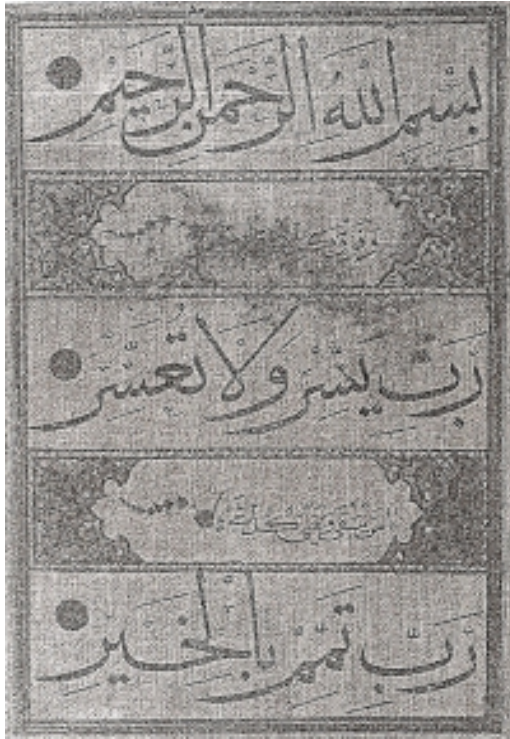 بِسْمِ اللهِ الرَّحْمٰنِ الرَّحِيمِ
رَبِّ يَسِّرْ وَلَا تُعَسِّرْ
رَبِّ تَمِّمْ بِالْخَيْرِ